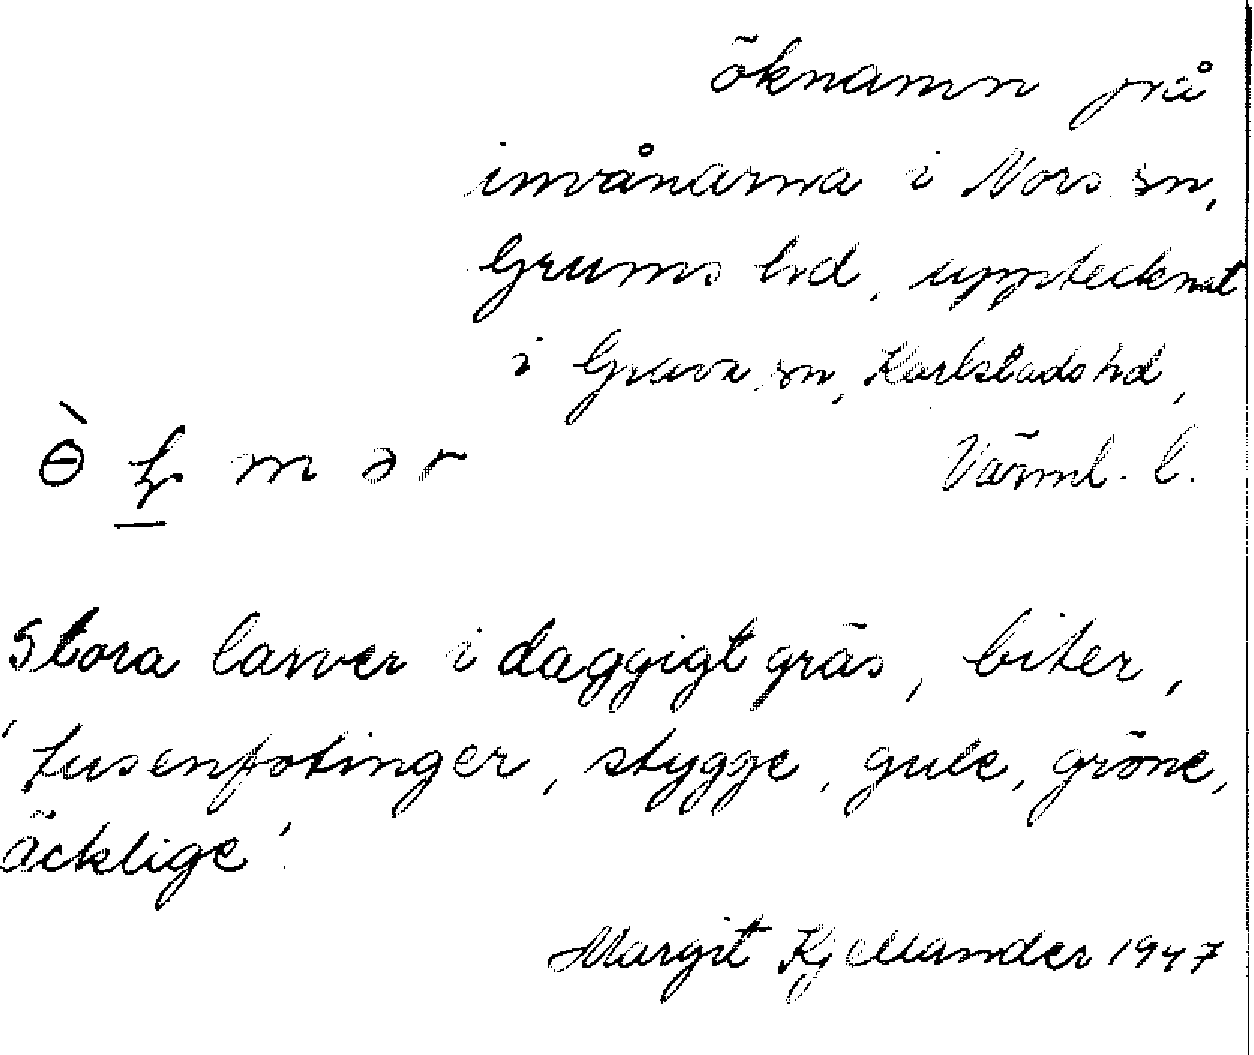 öknamn på
invånarna i Nors sn,
Grums hd, upptecknat
i Grava sn, Karlstads hd,
Värml. l.
Stora larver i daggigt gräs, biter,
'tusenfotinger, stygge, gule, gröne,
äcklige'.
Margit Kjellander 1947